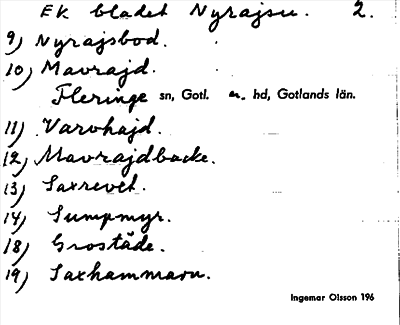 EK bladet Nyrajsu. 2.
9) Nyrajsbod.
10) Mavrajd.
Fleringe sn, Gotl. n. hd, Gotlands län.
11) Varvhajd.
12) Mavrajdbacke.
13) Saxrevet.
14) Sumpmyr.
18) Groståde.
19) Saxhammarn.
Ingemar Olsson 196